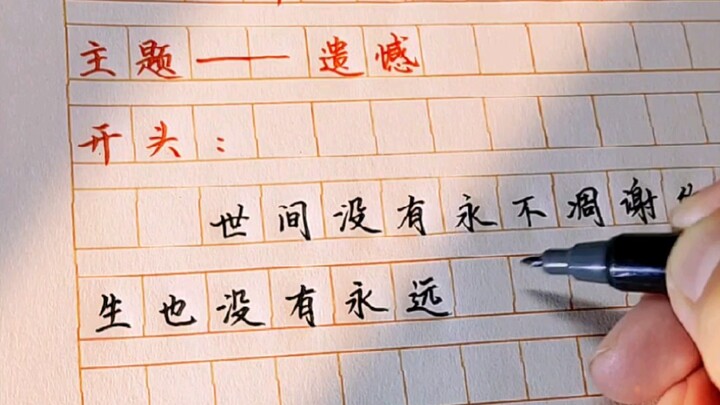 主题——遗憾
开头：
世间没有永不凋谢
生也没有永远